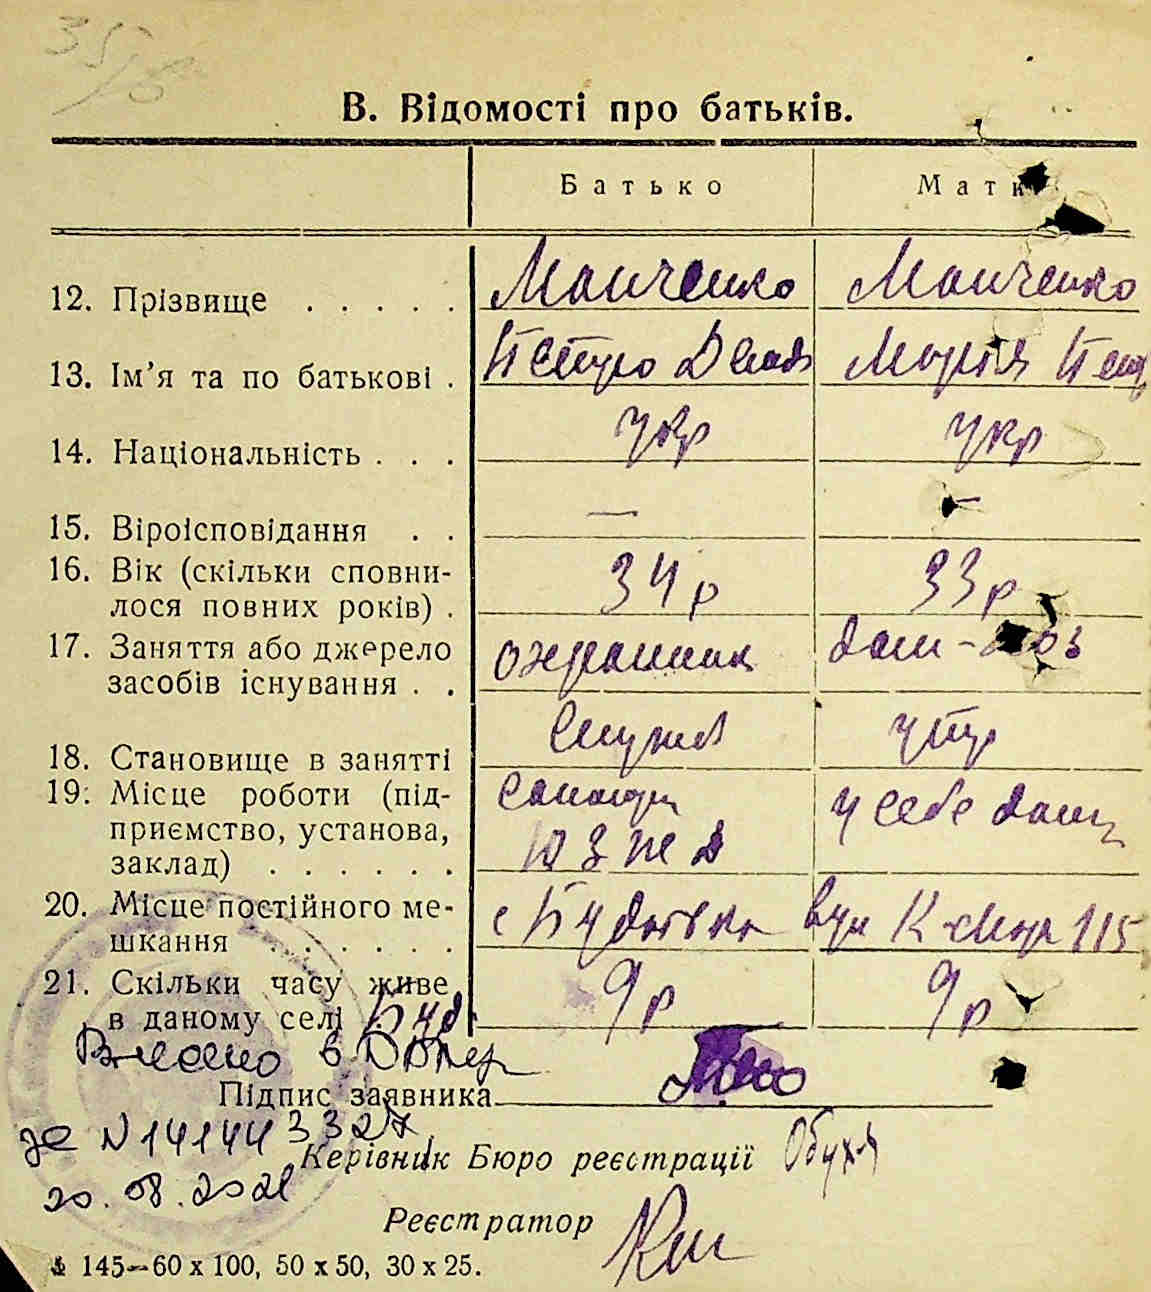 35/8
В. Відомості про батьків.
Батько Матк
12. Прізвище . . . . . Манченко Манченко
13. Ім’я та по батькові . Петро Демя Марія Пет
14. Національність . . . укр укр
15. Віроісповідання . . — —
16. Вік (скільки сповни-
лося повних років) . 34 р 33 р
17. Заняття або джерело
засобів існування . . охранник дом-
18. Становище в занятті Служ утр
19. Місце роботи (під-
приємство, установа,
заклад) . . . . . . ЮЗЖД у себе дома
20. Місце постійного ме-
шкання . . . . . . с Будаївка вул К-Маркса 115
21. Скільки часу живе
в даному селі Буд. 9 р 9 р
Внесено в
Підпис заявника
за N 14144 3327
Керівник Бюро реєстрації
20.08.2021
Реєстратор
145—60 x 100, 50 x 50, 30 x 25.